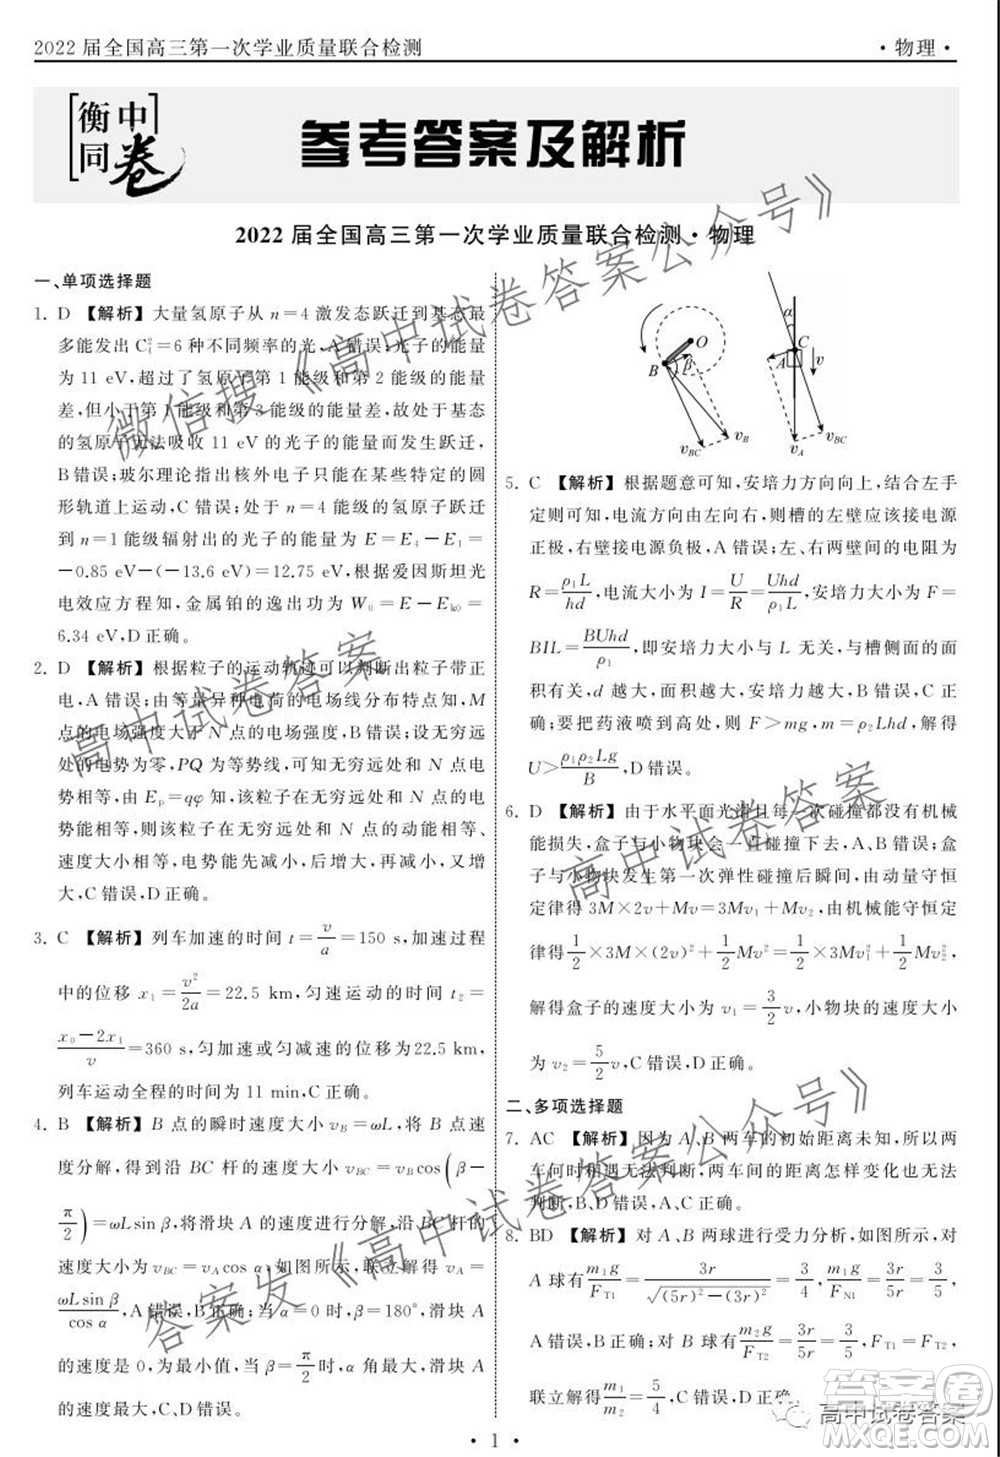 2022 届全国高三第一次学业质量联合检测
·物理·
衡中同卷
参考答案及解析
2022 届全国高三第一次学业质量联合检测·物理
一、单项选择题
1. D 【解析】大量氢原子从 n=4 激发态跃迁到基态最
多能发出 C²₄=6 种不同频率的光，A 错误；光子的能量
为 11 eV，超过了氢原子第 1 能级和第 2 能级的能量
差，但小于第 1 能级和第 3 能级的能量差，故处于基态
的氢原子无法吸收 11 eV 的光子的能量而发生跃迁，
B 错误；玻尔理论指出核外电子只能在某些特定的圆
形轨道上运动，C 错误；处于 n=4 能级的氢原子跃迁
到 n=1 能级辐射出的光子的能量为 E=E₄－E₁=
－0.85 eV－(－13.6 eV)=12.75 eV，根据爱因斯坦光
电效应方程知，金属铂的逸出功为 W₀=E－Eₖ₀=
6.34 eV，D 正确。
2. D 【解析】根据粒子的运动轨迹可以判断出粒子带正
电，A 错误；由等量异种电荷的电场线分布特点知，M
点的电场强度大于 N 点的电场强度，B 错误；设无穷远
处的电势为零，PQ 为等势线，可知无穷远处和 N 点电
势相等，由 Eₚ=qφ 知，该粒子在无穷远处和 N 点电
势能相等，则该粒子在无穷远处和 N 点的动能相等、
速度大小相等，电势能先减小，后增大，再减小，最后增
大，C 错误，D 正确。
3. C 【解析】列车加速的时间 t=v/a=150 s，加速过程
中的位移 x₁=v²/2a=22.5 km，匀速运动的时间 t₂=
(x₀－2x₁)/v=360 s，匀加速或匀减速的位移为22.5 km，
列车运动全程的时间为 11 min，C 正确。
4. B 【解析】B 点的瞬时速度大小 v_B=ωL，将 B 点速
度分解，沿 BC 杆的分速度大小 v_BC=v_B cos(β－
π/2)=ωLsin β，将滑块 A 的速度进行分解，沿 BC 杆的
速度大小为 v_BC=v_A cos α，如图所示，联立解得 v_A=
ωLsin β/cos α，A 错误，B 正确；当 α=0 时，β=180°，滑块 A
的速度为 0，为最小值，当 β=π/2 时，α 角最大，滑块 A
的速度最大，C、D 错误。
O
B
β
v_BC
v_B
α
C
A
v
v_BC
v_A
5. C 【解析】根据题意可知，安培力方向向上，结合左手
定则可知，电流方向由左向右，则槽的左壁应该接电源
正极，右壁接电源负极，A、B 错误；左、右两壁间的电阻为
R=ρ₁L/hd，电流大小为 I=U/R=Uhd/ρ₁L，安培力大小为 F=
BIL=BUhd/ρ₁，即安培力大小与 L 无关，与槽侧面的面
积有关，d 越大，面积越大，安培力大小越大，C 正
确；要把药液喷到高处，则 F>mg，m=ρ₂Lhd，解得
U>ρ₁ρ₂Lg/B，D 错误。
6. D 【解析】由于水平面光滑且每一次碰撞都没有机械
能损失，盒子与小物块会一直碰撞下去，A、B 错误；盒
子与小物块发生第一次弹性碰撞后瞬间，由动量守恒
定律得 3M×2v＋Mv=3Mv₁＋Mv₂，由机械能守恒定
律得 1/2×3M×(2v)²＋1/2Mv²=1/2×3Mv₁²＋1/2Mv₂²，
解得盒子的速度大小为 v₁=3/2v，小物块的速度大小
为 v₂=5/2v，C 错误，D 正确。
二、多项选择题
7. AC 【解析】因为 A、B 两车的初始距离未知，所以两
车何时相遇无法判断，两车间的距离怎样变化也无法
判断，B、D 错误，A、C 正确。
8. BD 【解析】对 A、B 两球进行受力分析，如图所示，对
A 球有 m₁g/F_T1=3r/√((5r)²－(3r)²)=3/4，m₁g/F_N1=3r/5r=3/5，
A 错误，B 正确；对 B 球有 m₂g/F_T2=3r/5r=3/5，F_T1=F_T2，
联立解得 m₁/m₂=5/4，C 错误，D 正确。
· 1 ·
微信搜《高中试卷答案公众号》
高中试卷答案
高中试卷答案
答案发《高中试卷答案公众号》
高中试卷答案
答案圈
MXQE.COM